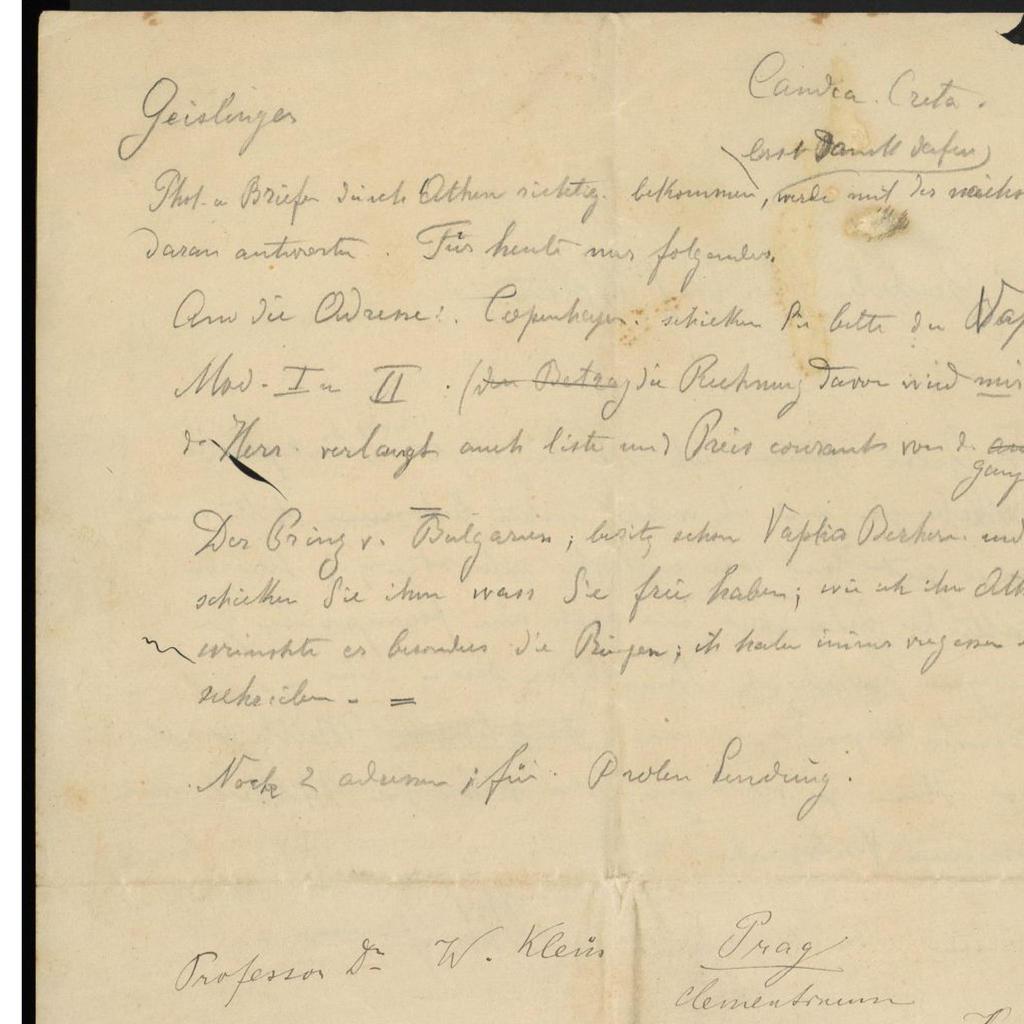 Candia. Creta.
Geislingen
erst Dank dafür
Phot. u Briefe durch Athen richtig. bekommen, werde mit der
daran antworten. Für heute nur folgendes.
An die Adresse: Copenhagen. schicken Sie bitte die
Mod. I u II. (den Betrag die Rechnung davon wird mir
d. Herr verlangt auch liste und Preis courants von d.
ganz
Der Prinz v. Bulgarien; besitz schon Vaphio Becher. und
schicken Sie ihm wass Sie frei haben; wie ich ihn
wünschte er besonders die ich habe immer vegessen
schreiben. =
Noch 2 adressen; für. Proben Sendung.
Professor Dr W. Klein
Prag
Clementinum